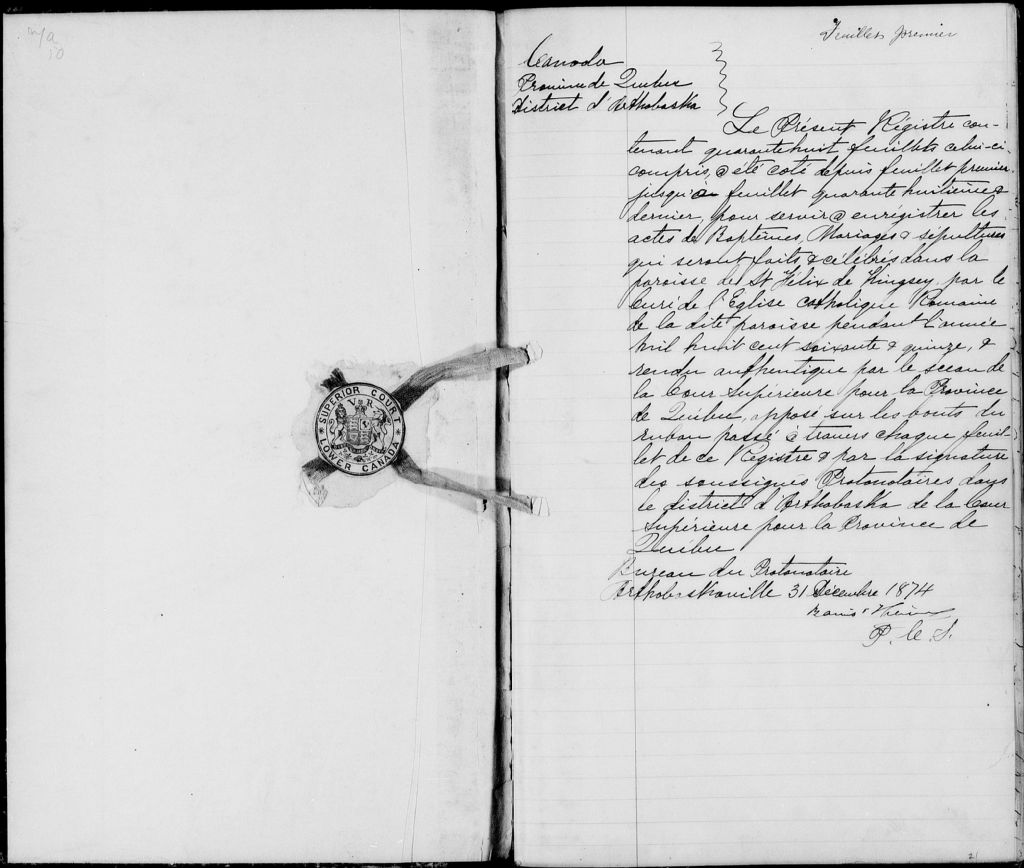 n/a
10
SUPERIOR COURT
V R
LOWER CANADA
Feuillet premier
Canada
Province de Québec
District d'Arthabaska
Le Présent Régistre con-
tenant quarante huit feuillets celui-ci
compris, a été coté depuis feuillet premier
jusqu'à feuillet quarante huitième &
dernier, pour servir a enrégistrer les
actes de Baptêmes, Mariages & sépultures
qui seront faits & célébrés dans la
paroisse de St Félix de Kingsey, par le
Curé de l'Eglise catholique Romaine
de la dite paroisse pendant l'année
mil huit cent soixante & quinze, &
rendu authentique par le sceau de
la Cour Supérieure pour la Province
de Québec, apposé sur les bouts du
ruban passé à travers chaque feuil-
let de ce Régistre & par la signature
des soussignés Protonotaires dans
le district d'Arthabaska de la Cour
Supérieure pour la Province de
Québec
Bureau du Protonotaire
Arthabaskaville 31 Décembre 1874
P. C. S.
2